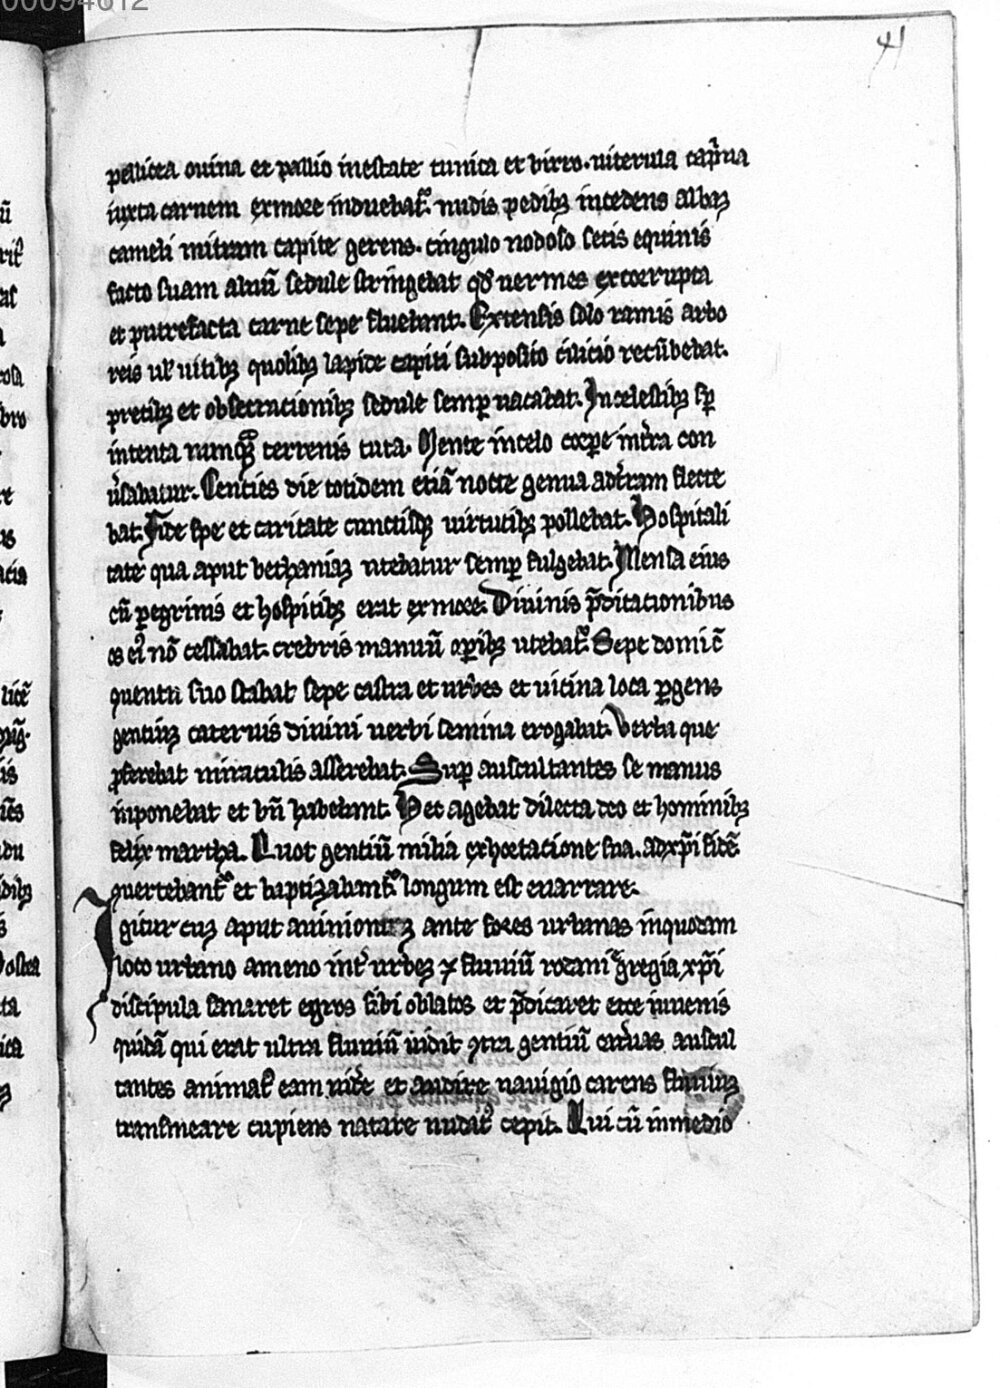 00094612
41
pellicea ouina et pallio inestate tunica et birro. uiterula cap̾na
iuxta carnem ex more induebat᷑. nudis pedibꝫ incedens albaꝫ
cameli mitram capite gerens. cingulo nodoso setis equinis
facto suam aluū sedule stringebat qđ uermes ex corrupta
et putrefacta carne sepe fluebant. Extensis solo ramis arbo
reis ul᷑ uitibꝫ quolibꝫ lapide capiti subposito cilicio recūbebat.
precibꝫ et obsecracionibꝫ sedule semꝑ uacabat. Incelestibꝫ sꝑ
intenta nunqꝫ terrenis tuta. Mente incelo corpe int̾ra con
u̾sabatur. Centies die totidem etiā nocte genua adt̾ram flecte
bat. Fide spe et caritate cunctisqꝫ uirtutibꝫ pollebat. Hospitali
tate qua aput bethaniaꝫ utebatur semꝑ fulgebat. Mensa eius
cū ꝑegrinis et hospitibꝫ erat ex more. Diuinis p̄ditacionibus
os ei᷒ nō cessabat. crebris manuū oꝑibꝫ utebat᷑. Sepe domi c̄
quentu suo stabat sepe castra et urbes et uicina loca ꝑgens
gentiuꝫ cateruis diuini uerbi semina erogabat. Verba que
ꝓferebat miraculis asserebat. Suꝑ auscultantes se manus
inponebat et bn̄ habebant. Hec agebat dilecta deo et hominibꝫ
felix martha. Quot gentiū milia exhortacione sua. adxp̄i fidē
ꝯuertebant᷑ et baptizabant᷑ longum est enarrare.
Igitur cuꝫ aput auinioneꝫ ante fores urbanas inquodam
loco urbano ameno int̾ urbeꝫ ⁊ fluuiū rodani egregia xp̄i
discipula sanaret egros sibi oblatos et p̄dicaret ecce iuuenis
quidā qui erat ultra fluuiū uidit ꝯtra gentiū cat̾uas auscul
tantes animaꝰ eam uid̾e et audire nauigio carens fluuiuꝫ
transmeare cupiens natare nudꝰ cepit. Qui cū inmedio